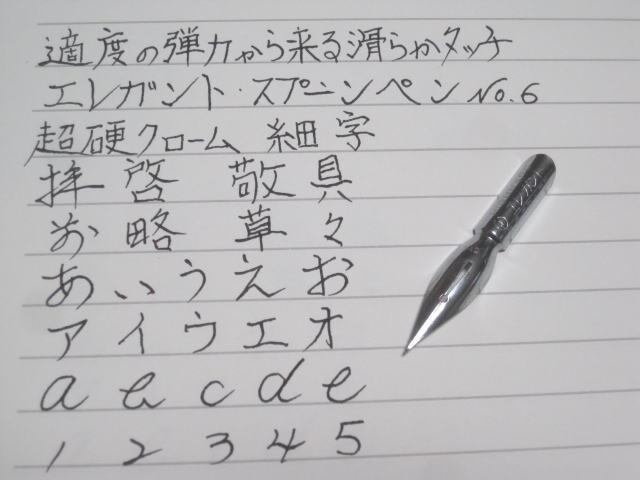 適度の弾力から来る滑らかタッチ
エレガント・スプーンペン No.6
超硬クローム 細字
拝啓 敬具
前略 草々
あいうえお
アイウエオ
a b c d e
1 2 3 4 5